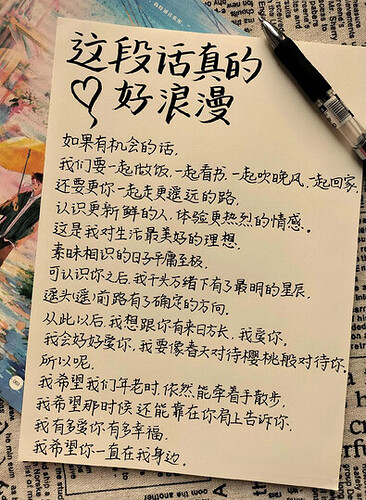 这段话真的
好浪漫
如果有机会的话,
我们要一起做饭,一起看书,一起吹晚风,一起回家.
还要更你一起走更遥远的路.
认识更新鲜的人,体验更热烈的情感。
这是我对生活最美好的理想.
素昧相识的日子平庸至极.
可认识你之后,我千头万绪下有了最明的星辰.
遥头遥前路有了确定的方向.
从此以后,我想跟你有来日方长,我爱你,
我会好好爱你,我要像春天对待樱桃般对待你.
所以呢.
我希望我们年老时,依然能牵着手散步.
我希望那时候还能靠在你肩上告诉你.
我有多爱你有多幸福.
我希望你一直在我身边.